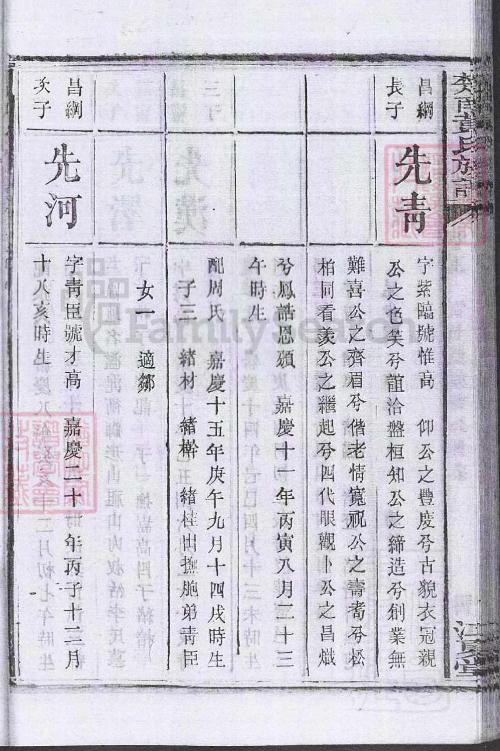 昌綱
長子
先青
字紫臨號惟高 仰公之豐度兮古貌衣冠親
公之色笑兮誼洽盤桓知公之締造兮創業無
難喜公之齊眉兮偕老情寬視公之壽耇兮松
柏同看羨公之繼起兮四代眼觀卜公之昌熾
兮鳳誥恩頒 嘉慶十一年丙寅八月二十三
午時生
配周氏 嘉慶十五年庚午九月十四戌時生
子三 緒材 緒 緒桂出撫胞弟靑臣
女一 適鄒
昌綱
次子
先河
字靑臣號才高 嘉慶二十 年丙子十二月
十八亥時生
FamilySearch